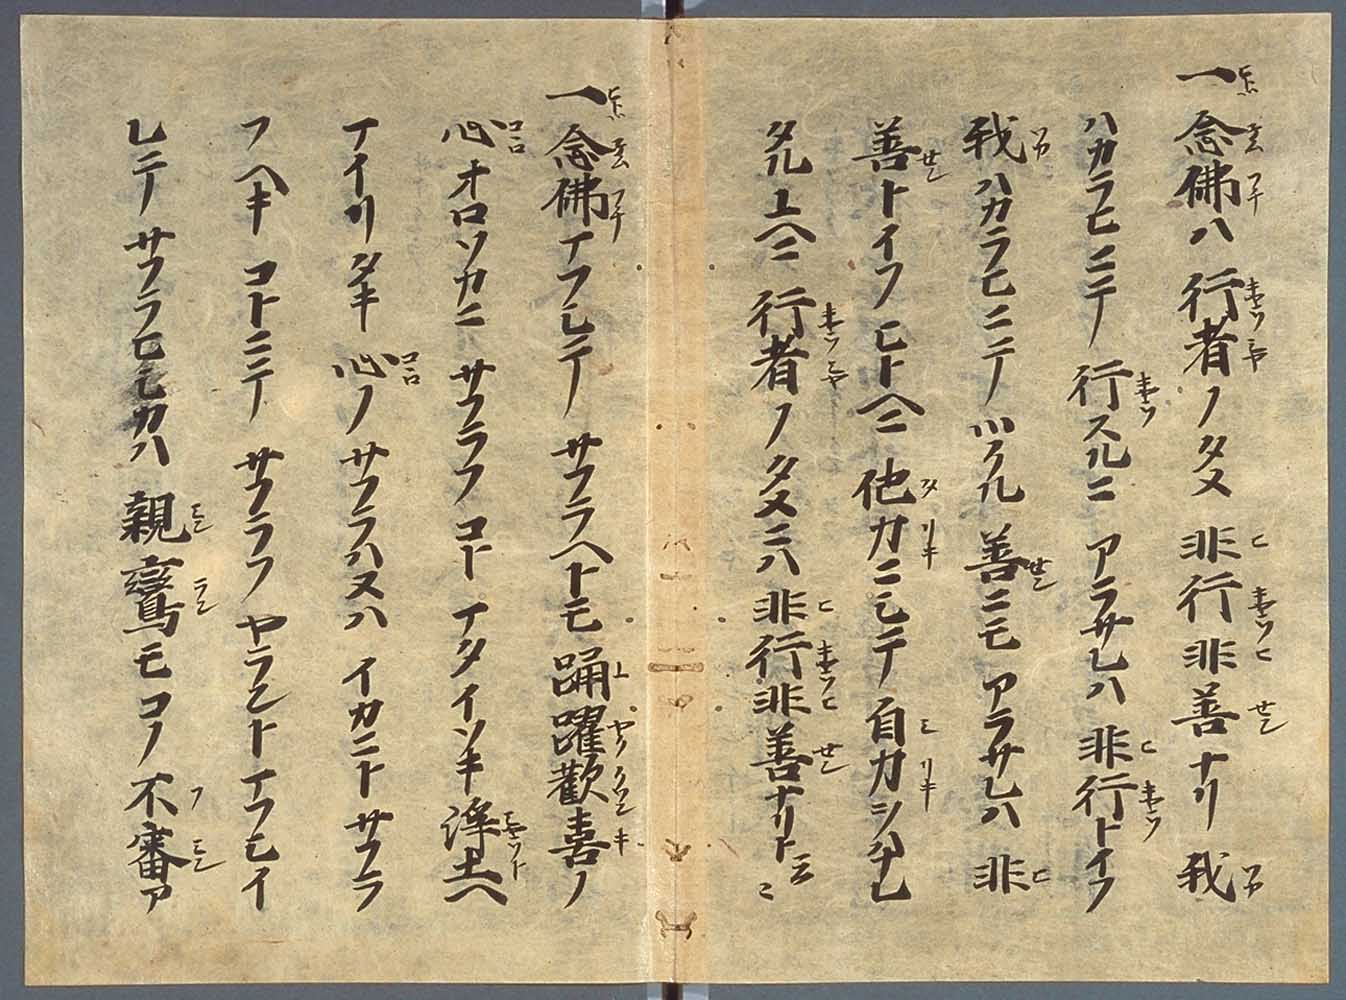 一念佛ハ行者ノタメ非行非善ナリ我
ハカラヒニテ行スルニアラサレハ非行トイフ
我ハカラヒニテツクル善ニモアラサレハ非
善トイフヒトヘニ他力ニシテ自力ヲハナレ
タルユヘニ行者ノタメニハ非行非善ナリト云々
一念佛マフシテサフラヘトモ踊躍歡喜ノ
心オロソカニサフラフコトマタイソキ浄土ヘ
マイリタキ心ノサフラハヌハイカニトサフラ
フヘキコトニテサフラフヤラントマフシイ
レテサフラヒシカハ親鸞モコノ不審ア